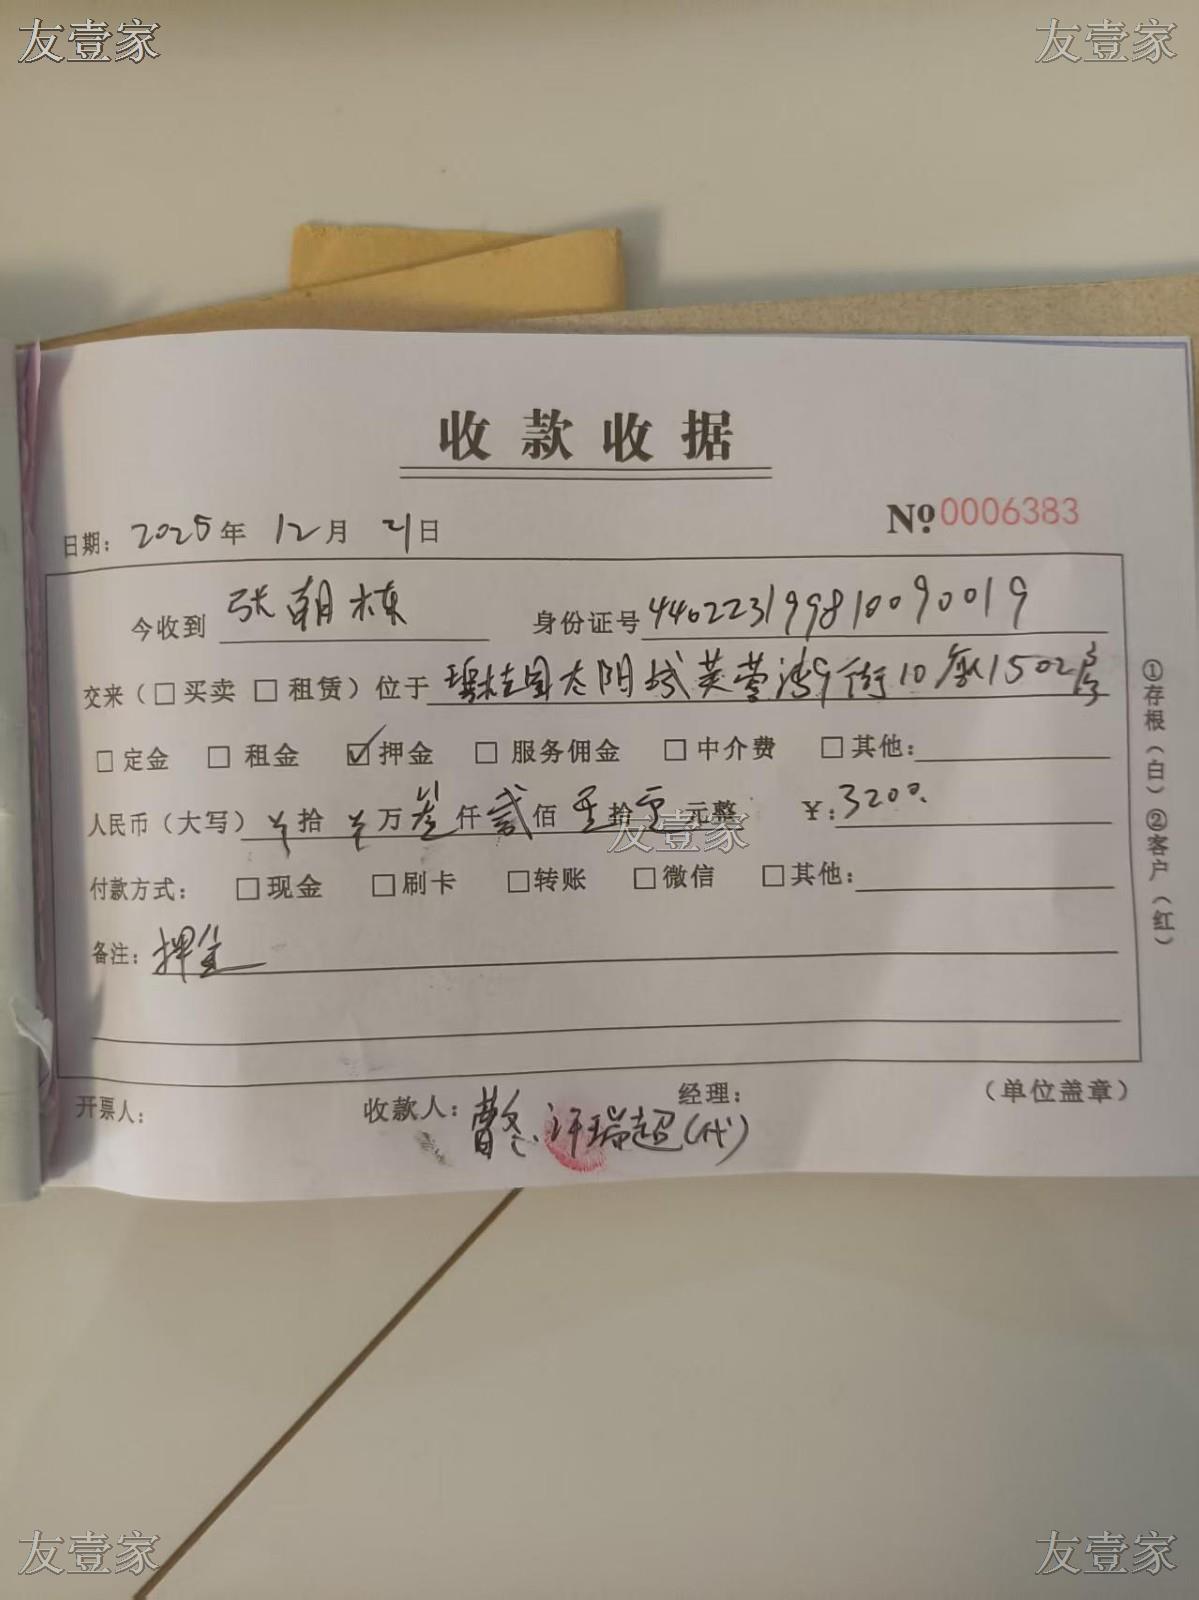 友壹家 友壹家
收款收据
日期: 2025年 12月 21日 Nº 0006383
今收到 张朝栋 身份证号 440223199810090019
交来(□买卖 □租赁)位于 碧桂园太阳城芙蓉湾9街10座1502房
□定金 □租金 ☑押金 □服务佣金 □中介费 □其他:
人民币(大写) ¥拾 ¥万 叁仟 贰佰 零拾 零元整 ¥: 3200.
友壹家
付款方式: □现金 □刷卡 □转账 □微信 □其他:
备注: 押金
开票人: 收款人: 许瑞超(代) 经理: (单位盖章)
①存根(白) ②客户(红)
友壹家 友壹家